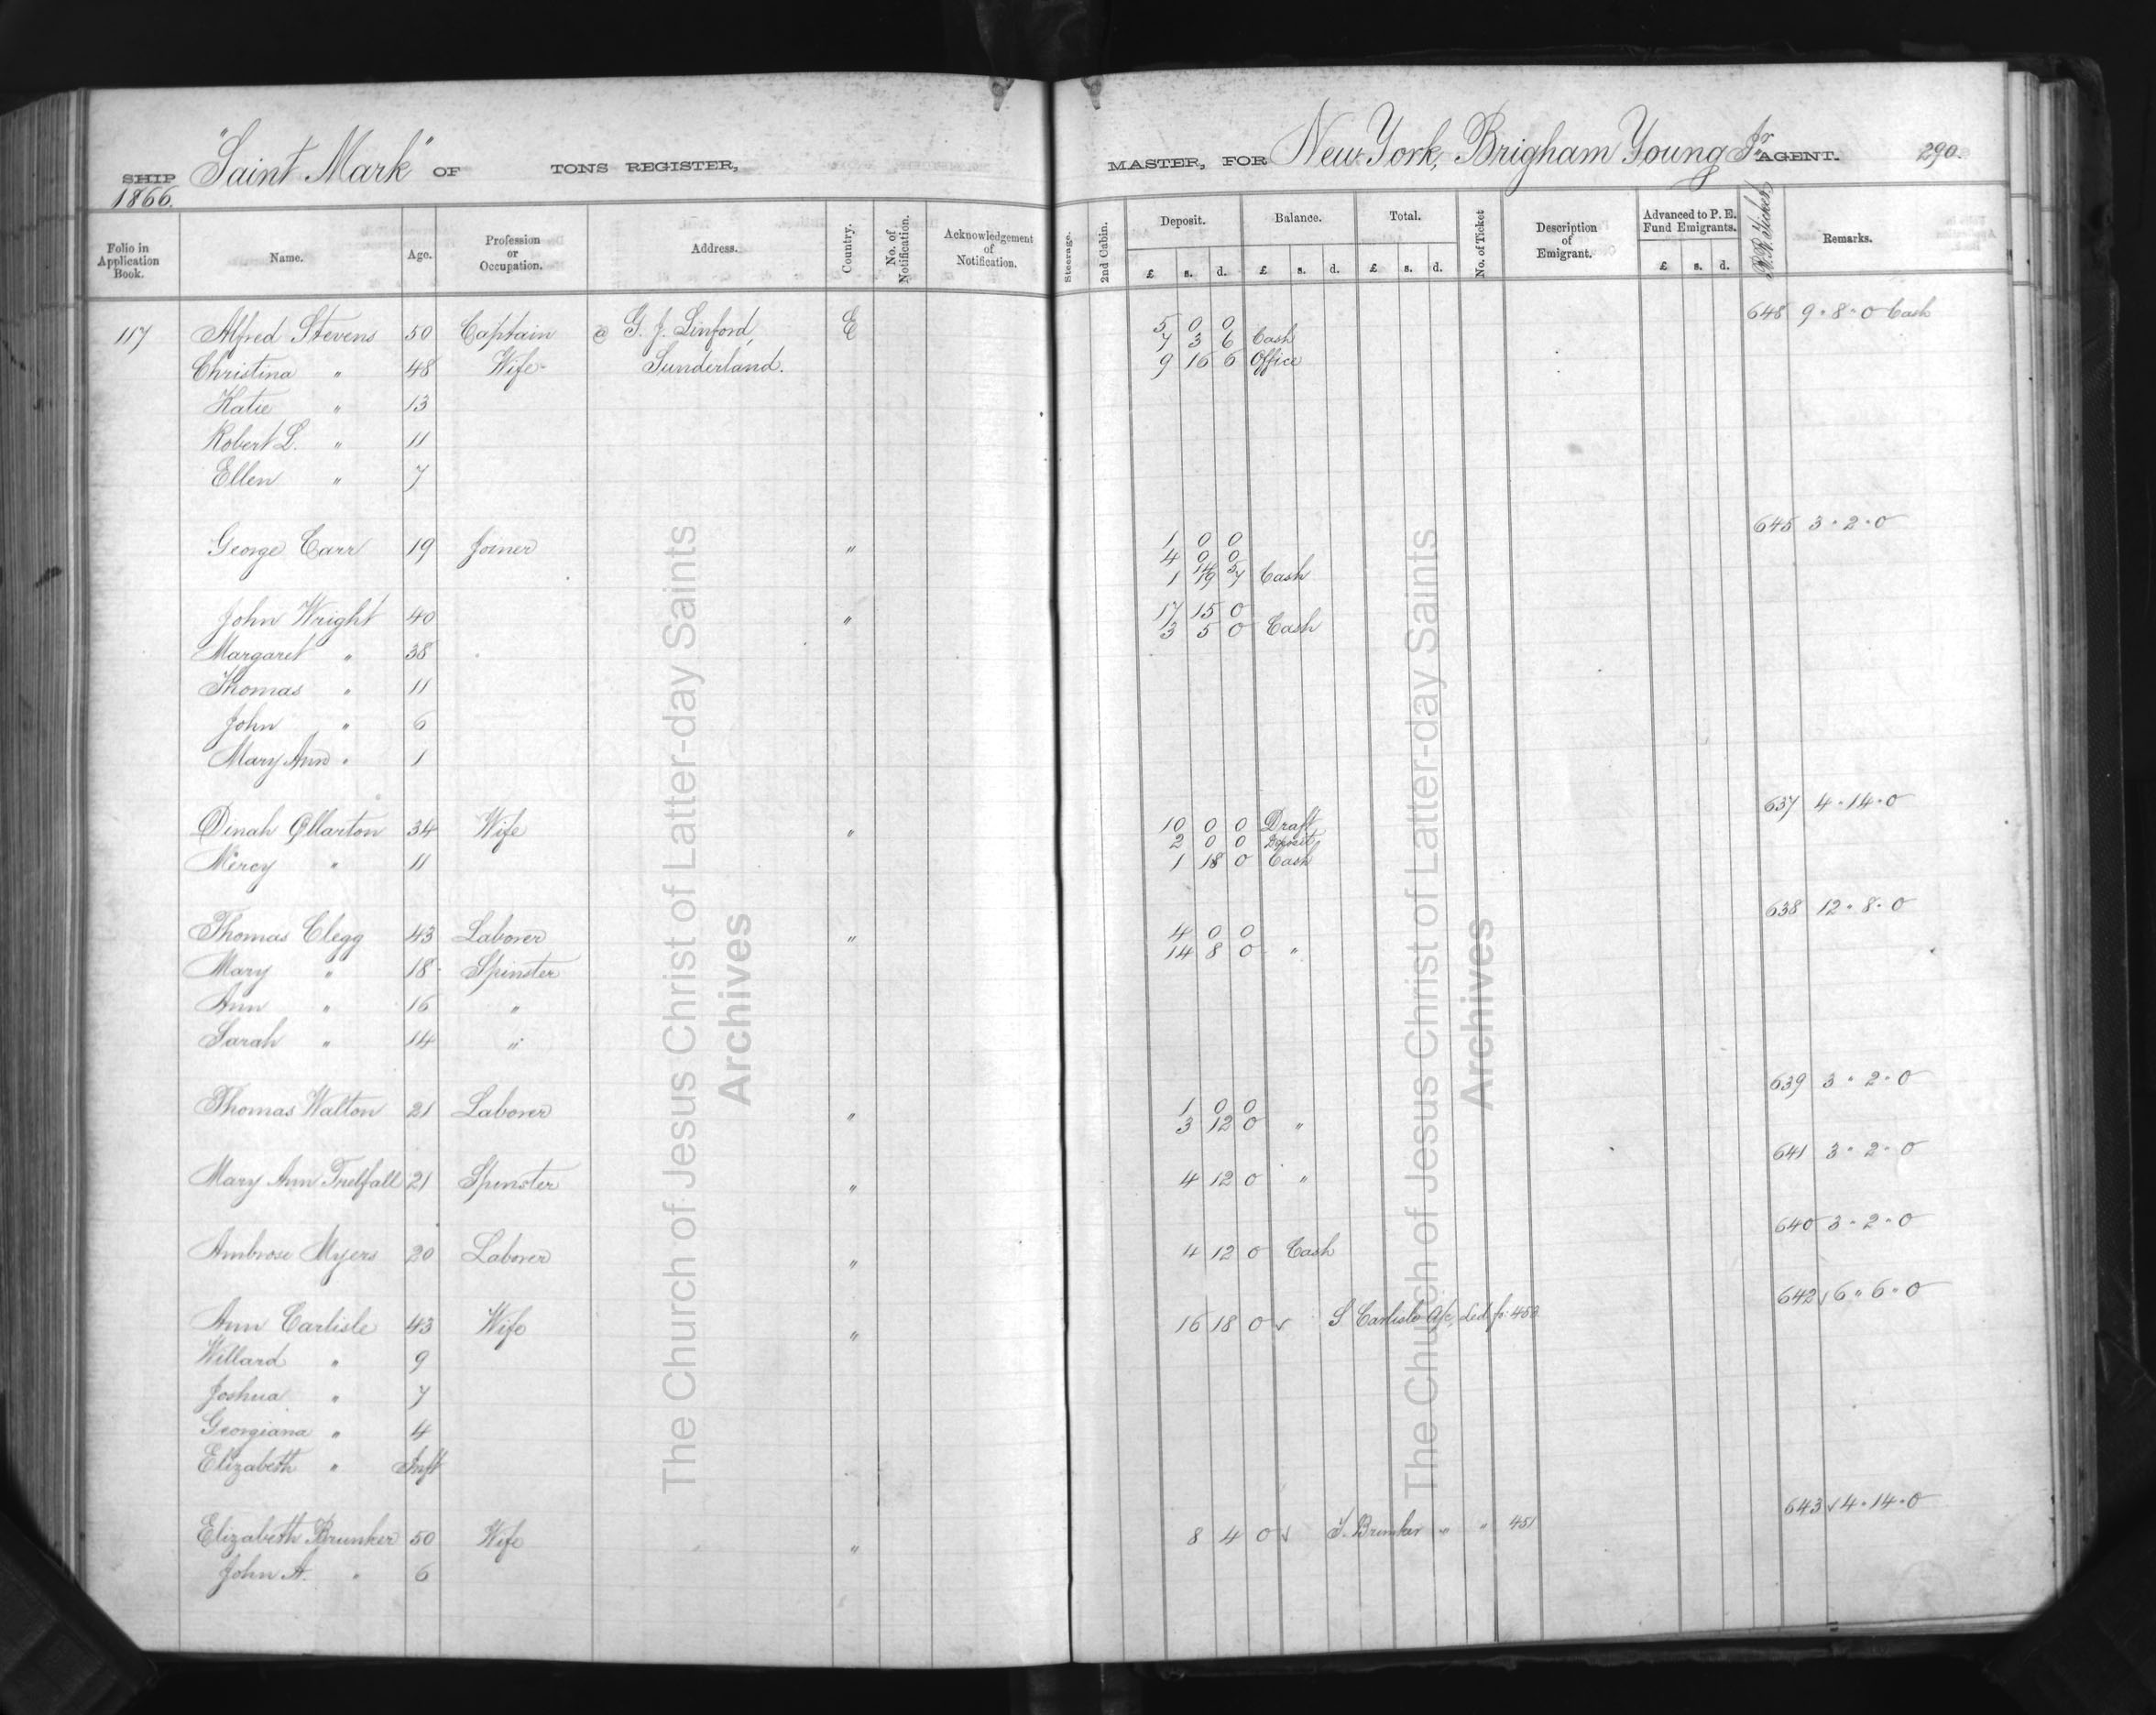 SHIP "Saint Mark" OF TONS REGISTER, MASTER, FOR New York, Brigham Young Jr AGENT. 290.
1866.
Folio in Application Book. Name. Age. Profession or Occupation. Address. Country. No. of Notification. Acknowledgement of Notification. Steerage. 2nd Cabin. Deposit. Balance. Total. No. of Ticket Description of Emigrant. Advanced to P. E. Fund Emigrants. R.R. Tickets Remarks.
£ s. d. £ s. d. £ s. d. £ s. d.
648 9 " 8 " 0 Cash
117 Alfred Stevens 50 Captain @ G. J. Linford, E 5 0 0
7 3 6 Cash
Christina " 48 Wife Sunderland. 9 16 6 Office
Katie " 13
Robert L. " 11
Ellen " 7
645 3 " 2 " 0
George Carr 19 Joiner " 1 0 0
4 0 0
1 Cash
John Wright 40 " 17 15 0
3 5 0 Cash
Margaret " 38
Thomas " 11
John " 6
Mary Ann " 1
637 4 " 14 " 0
Dinah Ollarton 34 Wife " 10 0 0 Draft
2 0 0 Deposit
Mercy " 11 1 18 0 Cash
638 12 " 8 " 0
Thomas Clegg 43 Laborer " 4 0 0
14 8 0 "
Mary " 18 Spinster
Ann " 16 "
Sarah " 14 "
639 3 " 2 " 0
Thomas Walton 21 Laborer " 1 0 0
3 12 0 "
641 3 " 2 " 0
Mary Ann Trelfall 21 Spinster " 4 12 0 "
640 3 " 2 " 0
Ambrose Myers 20 Laborer " 4 12 0 Cash
642 √ 6 " 6 " 0
Ann Carlisle 43 Wife " 16 18 0 √ S. Carlisle a/c, Led. fo: 453
Willard " 9
Joshua " 7
Georgiana " 4
Elizabeth " Inft
643 √ 4 " 14 " 0
Elizabeth Brunker 50 Wife " 8 4 0 √ Brunker " " 451
John A. " 6
The Church of Jesus Christ of Latter-day Saints
Archives
The Church of Jesus Christ of Latter-day Saints
Archives